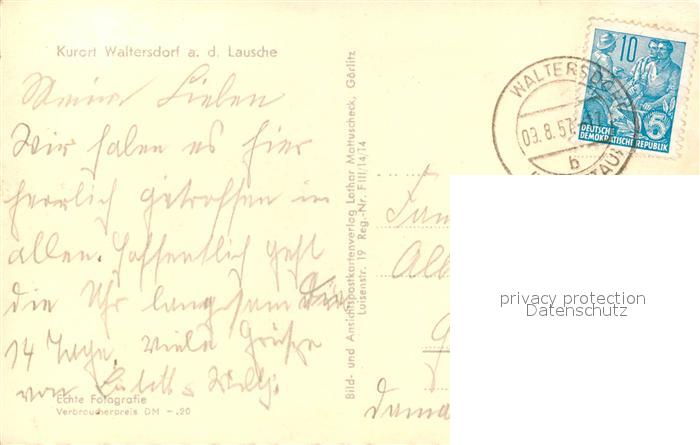 Kurort Waltersdorf a. d. Lausche
Meine Lieben
Wir haben es hier
herrlich getroffen in
allem. Hoffentlich geht
die Uhr langsam die
14 Tage. Viele Grüße
von & Willy.
Echte Fotografie
Verbraucherpreis DM -.20
Bild- und Ansichtspostkartenverlag Lothar Mattuscheck, Görlitz
Luisenstr. 19 Reg.-Nr. F III/14/14
WALTERSDORF
03.8.57
b
10
5
DEUTSCHE
DEMOKRATISCHE REPUBLIK
Fam
Alb
privacy protection
Datenschutz